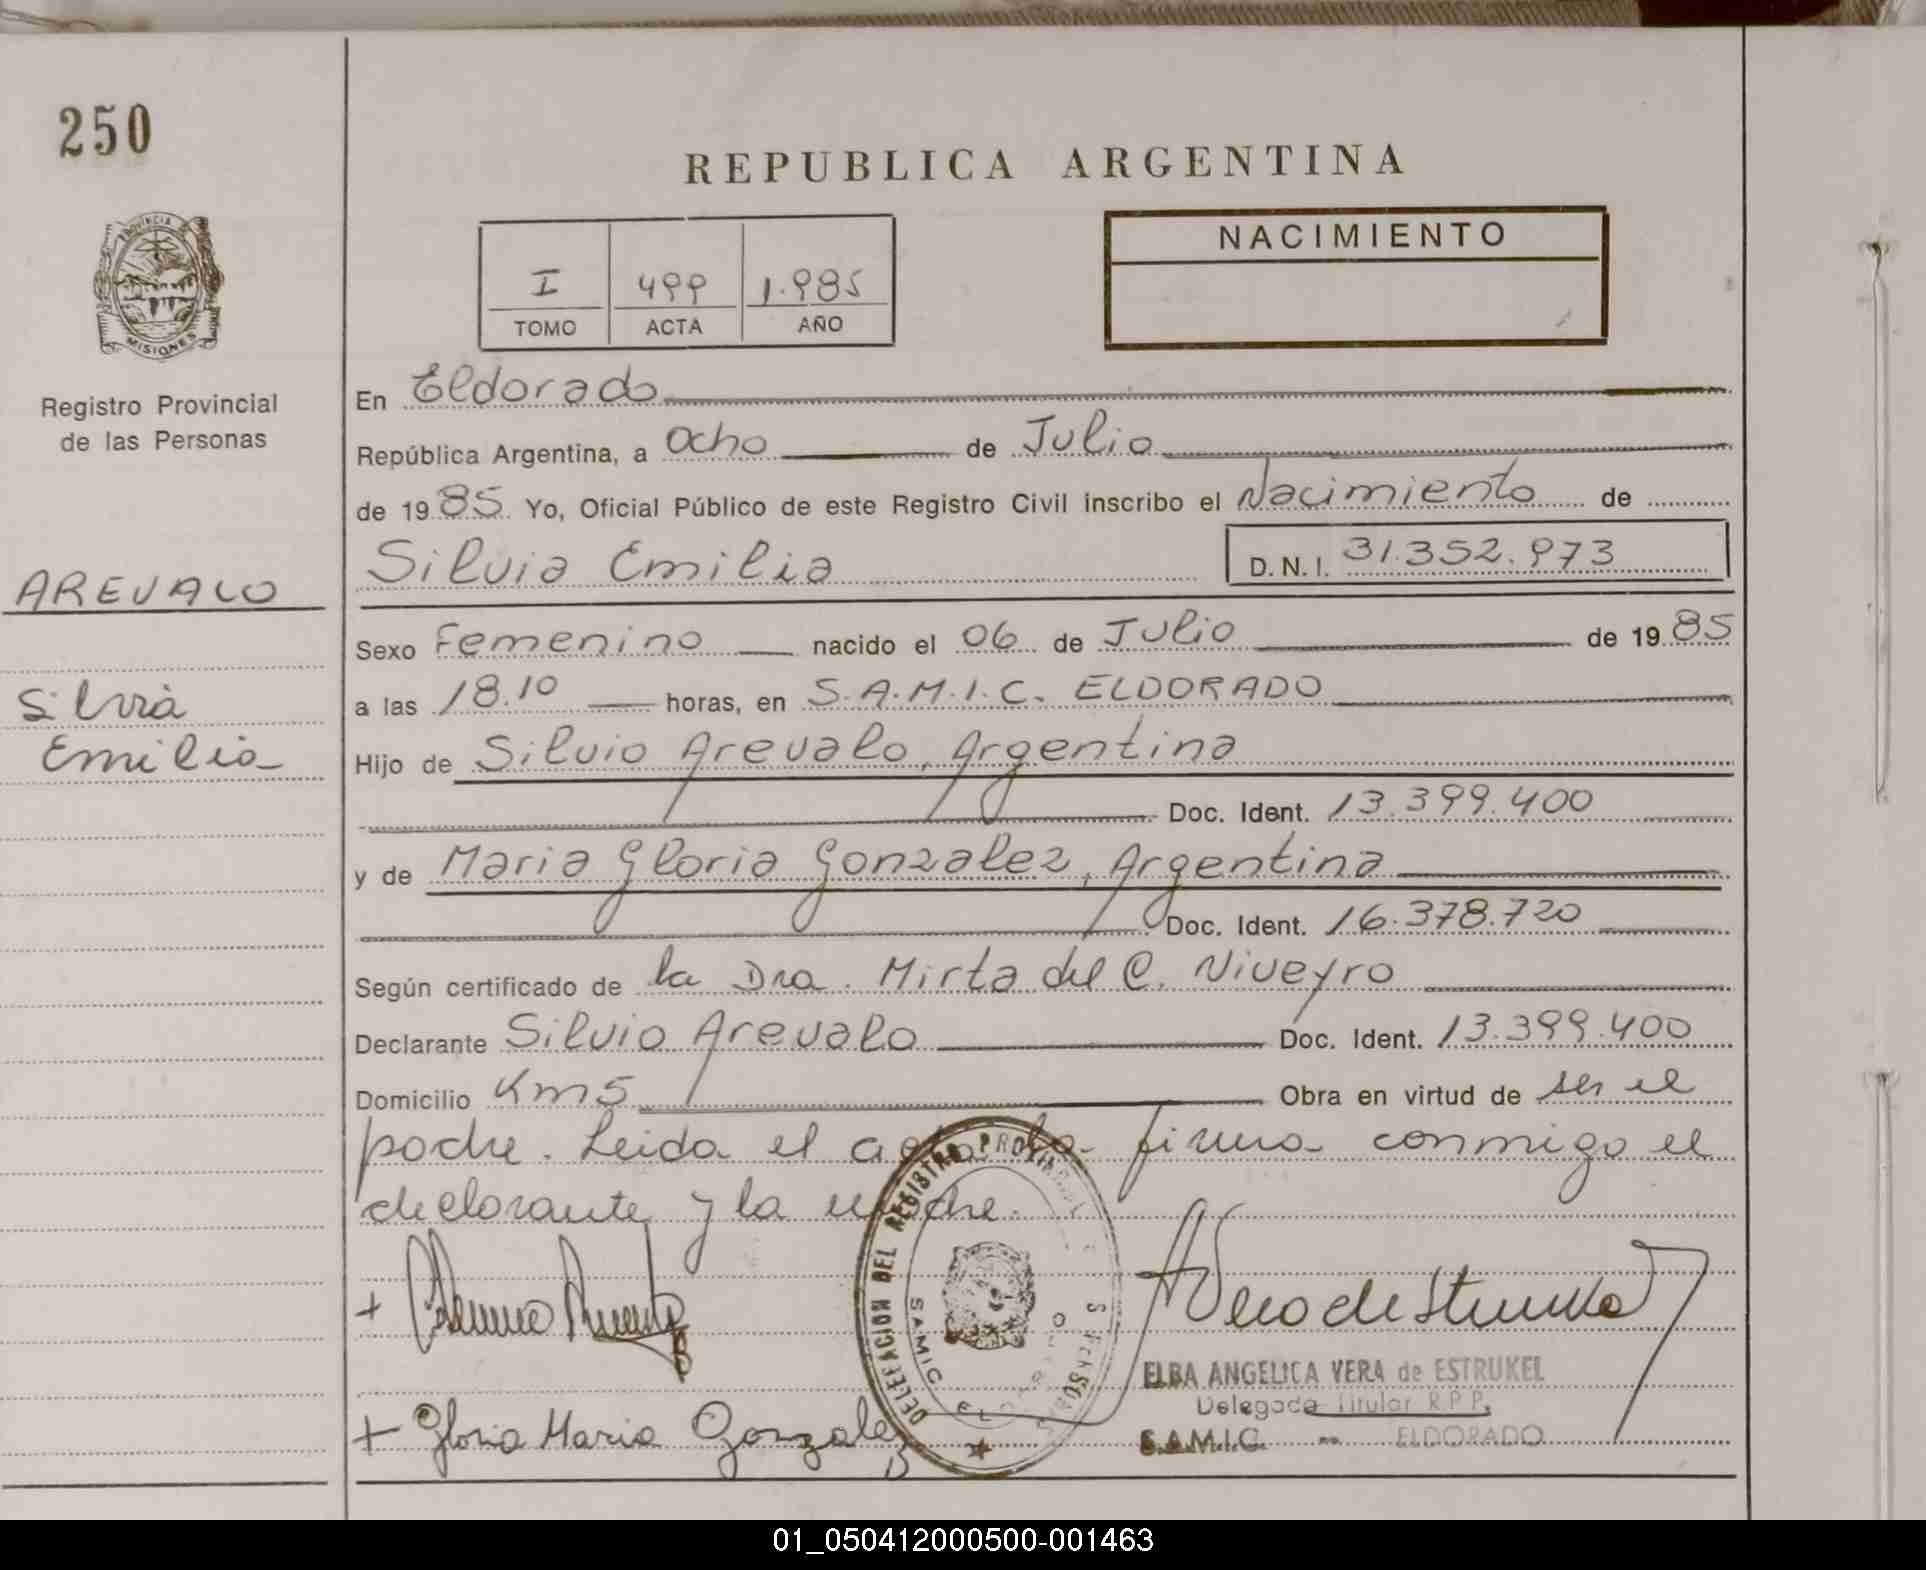 250
REPUBLICA ARGENTINA
PROVINCIA
MISIONES
Registro Provincial
de las Personas
I 499 1.985
TOMO ACTA AÑO
NACIMIENTO
En Eldorado
República Argentina, a Ocho de Julio
de 1985 Yo, Oficial Público de este Registro Civil inscribo el Nacimiento de
Silvia Emilia D.N.I. 31.352.973
AREVALO
Silvia
Emilia
Sexo Femenino nacido el 06 de Julio de 1985
a las 18.10 horas, en S.A.M.I.C. ELDORADO
Hijo de Silvio Arevalo, Argentina
Doc. Ident. 13.399.400
y de Maria Gloria Gonzalez, Argentina
Doc. Ident. 16.378.720
Según certificado de la Dra. Mirta del C. Niveyro
Declarante Silvio Arevalo Doc. Ident. 13.399.400
Domicilio Km5 Obra en virtud de ser el
padre. Leida el acta la firma conmigo el
declarante y la madre.
DELEGACION DEL REGISTRO PROVINCIAL
SAMIC
ELBA ANGELICA VERA de ESTRUKEL
Delegada Titular R.P.P.
S.A.M.I.C. - ELDORADO
+ Gloria Maria Gonzalez
01_050412000500-001463